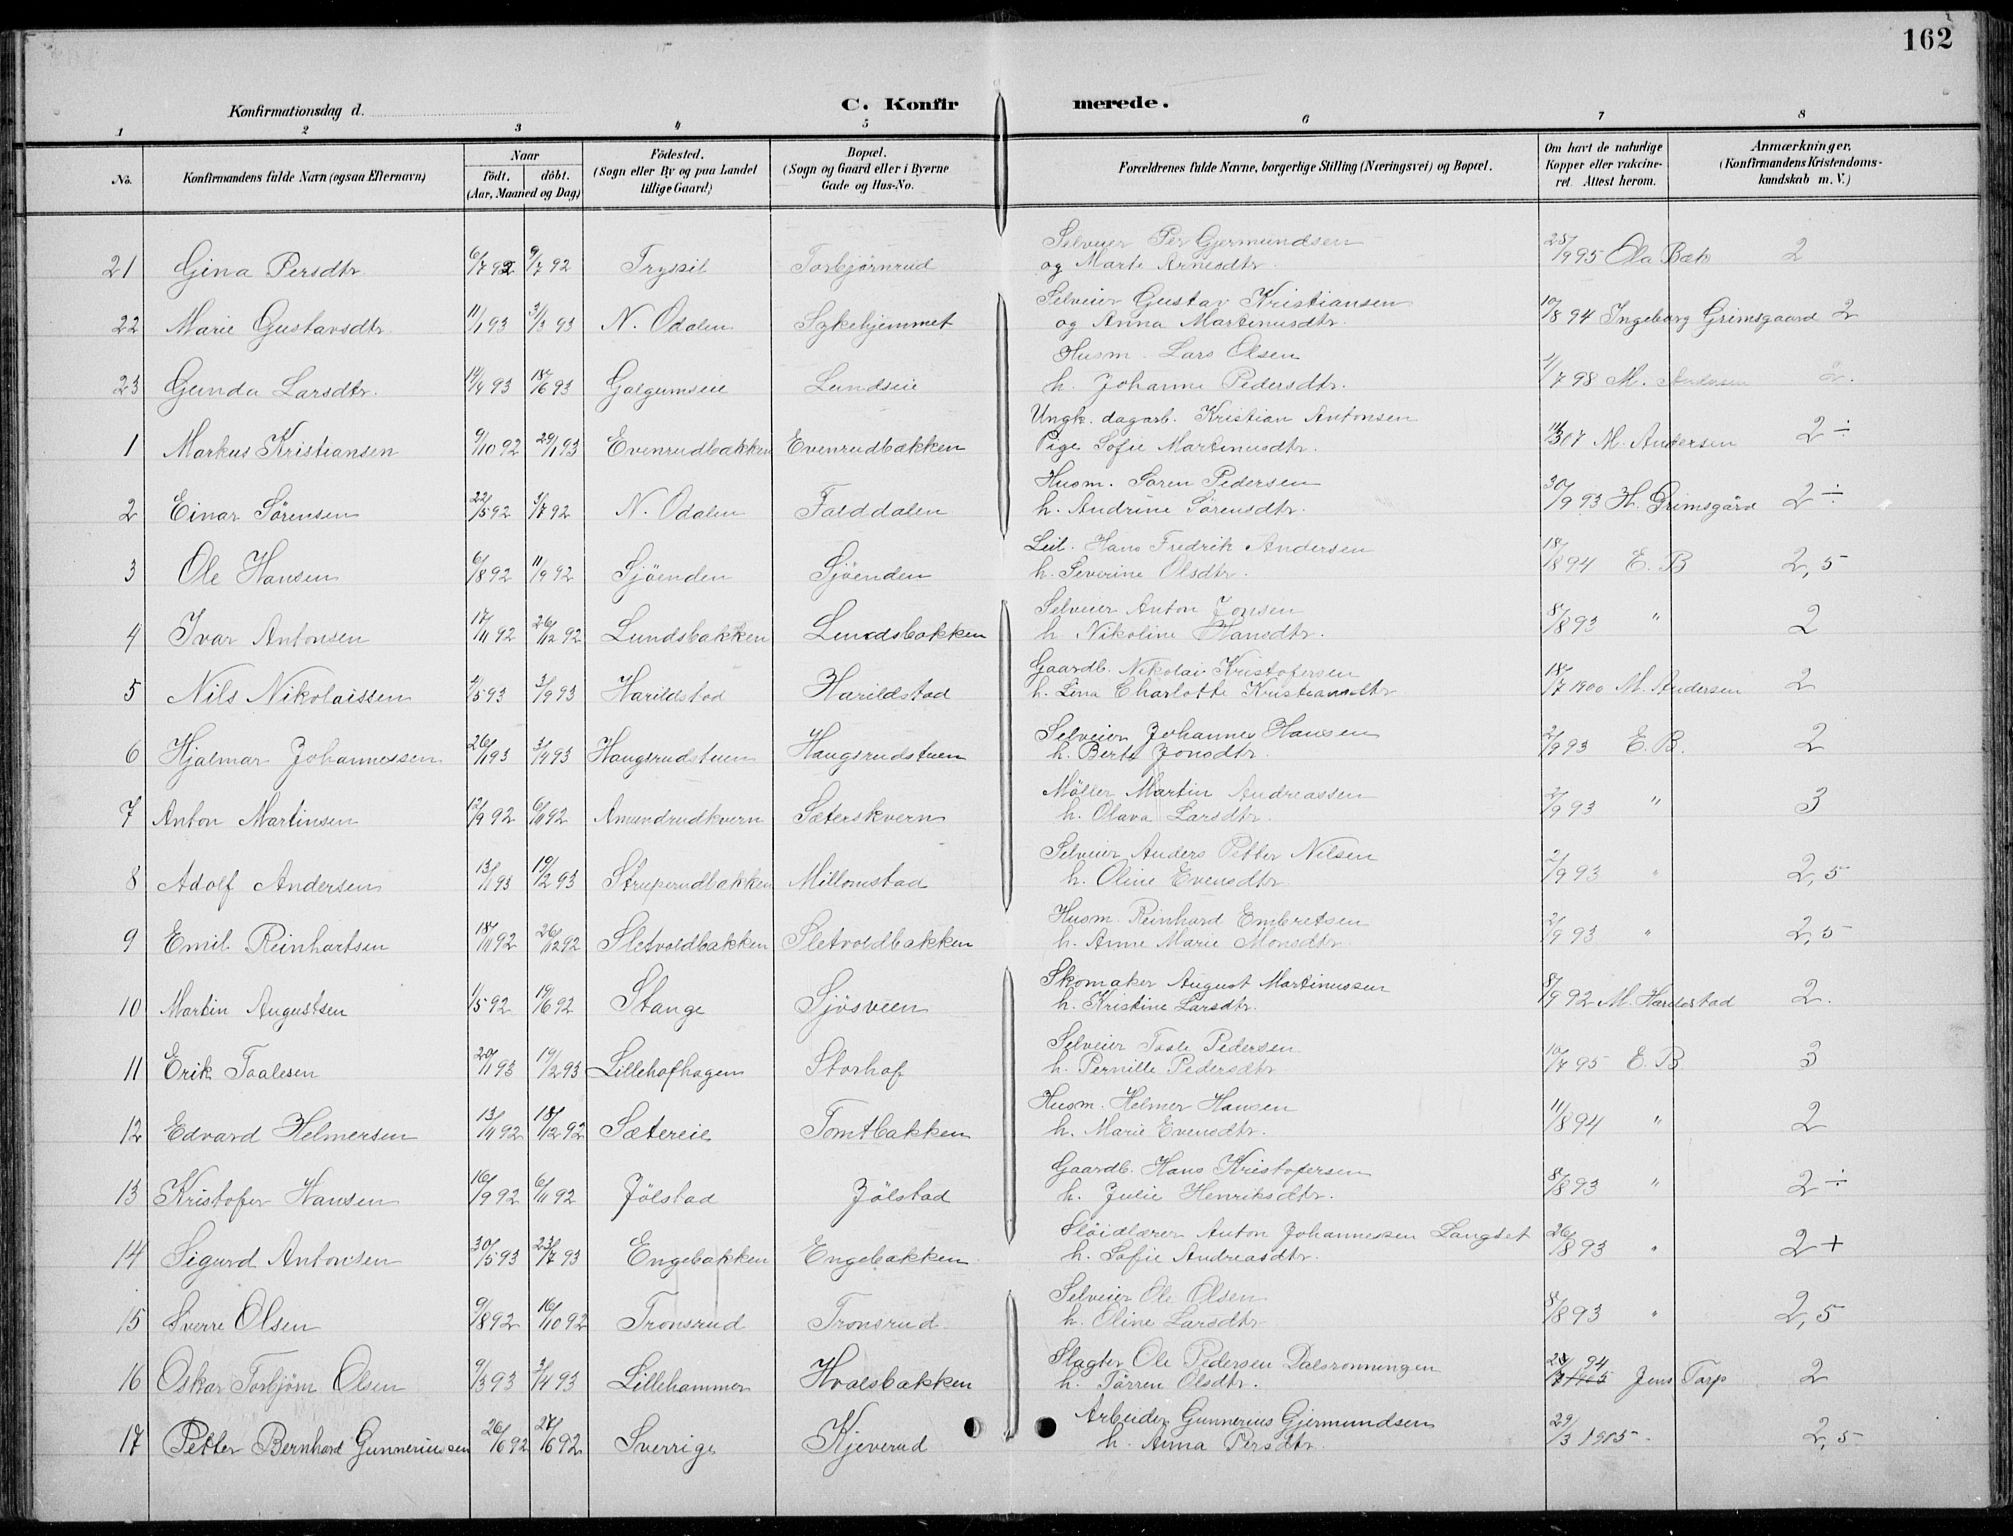 162
Konfirmationsdag d.
C. Konfirmerede.
1 2 3 4 5 6 7 8
No. Konfirmandens fulde Navn (ogsaa Efternavn) Naar født. døbt. (Aar, Maaned og Dag) Födested. (Sogn eller By og paa Landet tillige Gaard) Bopæl. (Sogn og Gaard eller i Byerne Gade og Hus-No. Forældrenes fulde Navne, borgerlige Stilling (Næringsvei) og Bopæl. Om havt de naturlige Kopper eller vakcineret. Attest herom. Anmærkninger, (Konfirmandens Kristendomskundskab m. V.)
Selveier Per Gjermundsen
21 Gina Persdtr. 6/7 92 9/7 92 Trysil Torbjørnrud og Marte Arnesdtr. 25/9 95 Ola Bæk 2
Selveier Gustav Kristiansen
22 Marie Gustavsdtr. 11/1 93 3/3 93 N. Odalen Sykehjemmet og Anna Martinusdtr. 10/8 94 Ingeborg Grimsgaard 2
Husm. Lars Olsen
23 Gunda Larsdtr. 14/4 93 18/6 93 Galgumseie Lundseie h. Johanne Pedersdtr. /7 98 M. Andersen 2.
Ungk. dagarb. Kristian Antonsen
1 Markus Kristiansen 9/10 92 29/1 93 Evenrudbakken Evenrudbakken Pige Sofie Martinusdtr. 07 M. Andersen 2 ÷
Husm. Søren Pedersen
2 Einar Sørensen 22/5 92 3/7 92 N. Odalen Falddalen h. Andrine Sørensdtr. 30/9 93 H. Grimsgård 2 ÷
Leil. Hans Fredrik Andersen
3 Ole Hansen 6/8 92 11/9 92 Sjøenden Sjøenden h. Severine Olsdtr. 18/8 94 E. B 2,5
Selveier Anton Jonsen
4 Ivar Antonsen 17/11 92 26/12 92 Lundsbakken Lundsbakken h. Nikoline Hansdtr. 8/8 93 " 2
Gaardb. Nikolai Kristofersen
5 Nils Nikolaissen /5 93 3/9 93 Harildstad Harildstad h. Lina Charlotte Kristiansdtr 18/7 1900 M. Andersen 2
Selveier Johannes Hansen
6 Hjalmar Johannessen 26/1 93 3/4 93 Haugsrudstuen Haugsrudstuen h. Berte Jonsdtr. 2/9 93 E. B. 2
Møller Martin Andreassen
7 Anton Martinsen 12/9 92 6/11 92 Amundrudkvern Sæterskvern h. Olava Larsdtr. 2/9 93 " 3
Selveier Anders Petter Nilsen
8 Adolf Andersen 13/1 93 19/2 93 Struperudbakken Millomstad h. Oline Evensdtr 2/9 93 " 2,5
Husm. Reinhard Embretsen
9 Emil Reinhartsen 18/11 92 26/12 92 Sletvoldbakken Sletvoldbakken h. Anne Marie Monsdtr. 2/9 93 " 2,5
Skomaker August Martinussen
10 Martin Augustsen 1/5 92 19/6 92 Stange Sjøsveen h. Kristine Larsdtr. 8/9 92 M. Harildstad 2.
Selveier Taale Pedersen
11 Erik Taalesen 20/1 93 19/2 93 Lillehofhagen Storhof h. Pernille Pedersdtr 10/7 95 E. B. 3
Husm. Helmer Hansen
12 Edvard Helmersen 13/11 92 18/12 92 Sætereie Tomtbakken h. Marie Evensdtr. 11/8 94 " 2
Gaardb. Hans Kristofersen
13 Kristofer Hansen 16/9 92 6/11 92 Jølstad Jølstad h. Julie Henriksdtr. 8/8 93 " 2 ÷
Sløidlærer Anton Johannessen Langset
14 Sigurd Antonsen 30/5 93 23/7 93 Engebakken Engebakken h. Sofie Andreasdtr. 26/8 93 " 2 +
Selveier Ole Olsen
15 Sverre Olsen 9/8 92 16/10 92 Tronsrud Tronsrud h. Oline Larsdtr. 8/8 93 " 2,5
Slagter Ole Pedersen Dalsrønningen
16 Oskar Torbjørn Olsen 9/3 93 3/4 93 Lillehammer Hvalsbakken h. Tørren Olsdtr. 94 Jens Tarp 2
Arbeider Gunnerius Gjermundsen
17 Petter Bernhard Gunneriussen 26/6 92 27/6 92 Sverrige Kjeverud h. Anna Persdtr. 29/3 1905 2,5